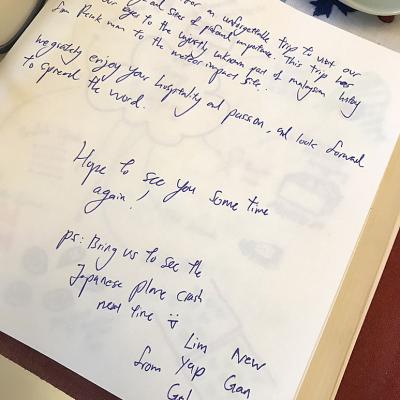 for an unforgettable trip to visit our
and sites of personal importance. This trip has
our eyes to the vaguely unknown part of malaysian history
from Perak man to the meteor impact site..
We greatly enjoy your hospitality and passion, and look forward
to spread the word.
Hope to see you some time
again!
ps: Bring us to see the
Japanese plane crash
next time
Lim New
from Yap Gan